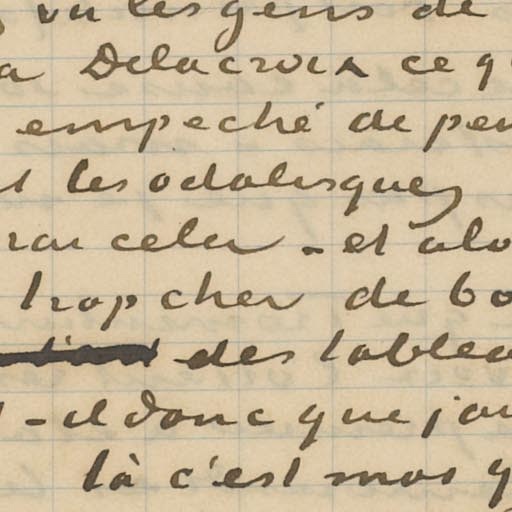 vu les gens de
a Delacroix ce q
empeché de pei
les odalisques
cela - et alo
trop cher de bo
des tablea
- et donc que j'au
là c'est moi q